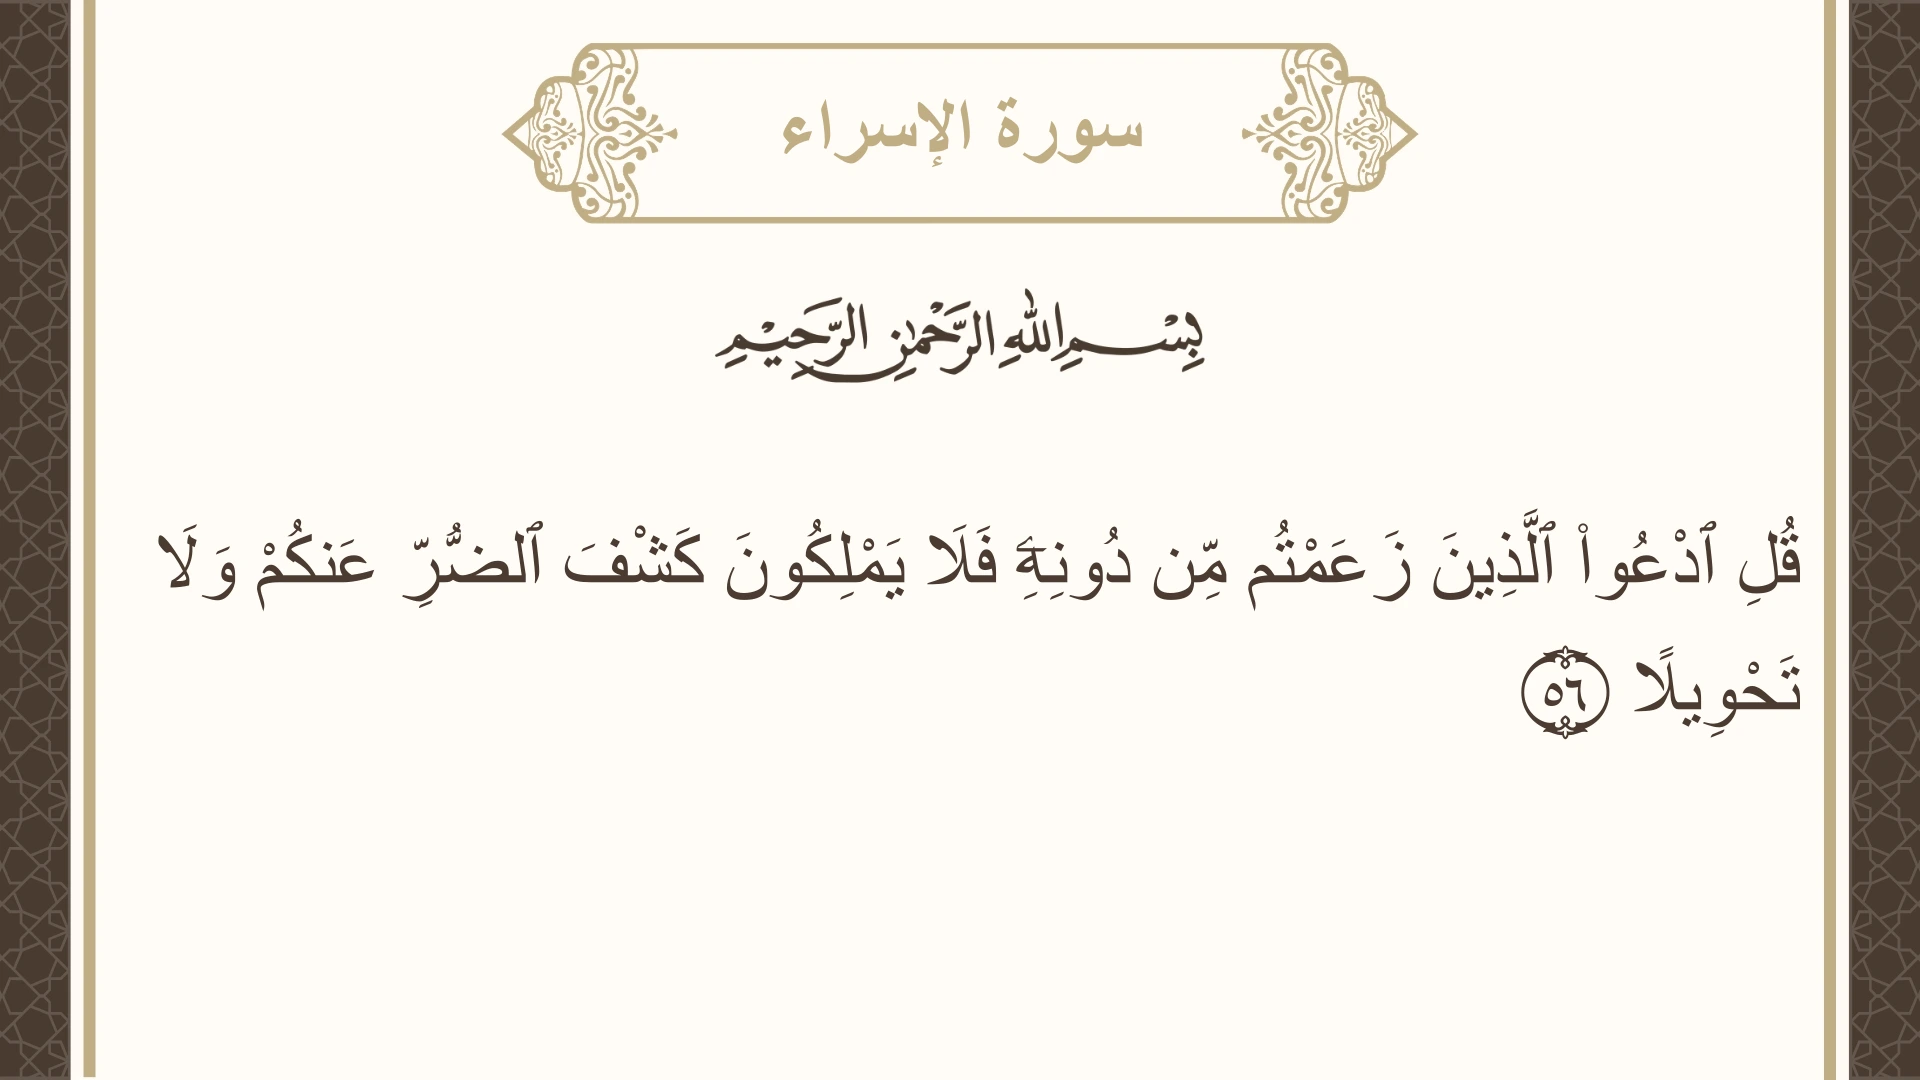 سورة الإسراء
بِسْمِ اللهِ الرَّحْمٰنِ الرَّحِيْمِ
قُلِ ٱدْعُوا۟ ٱلَّذِينَ زَعَمْتُم مِّن دُونِهِۦٓ فَلَا يَمْلِكُونَ كَشْفَ ٱلضُّرِّ عَنكُمْ وَلَا
تَحْوِيلًا ٥٦